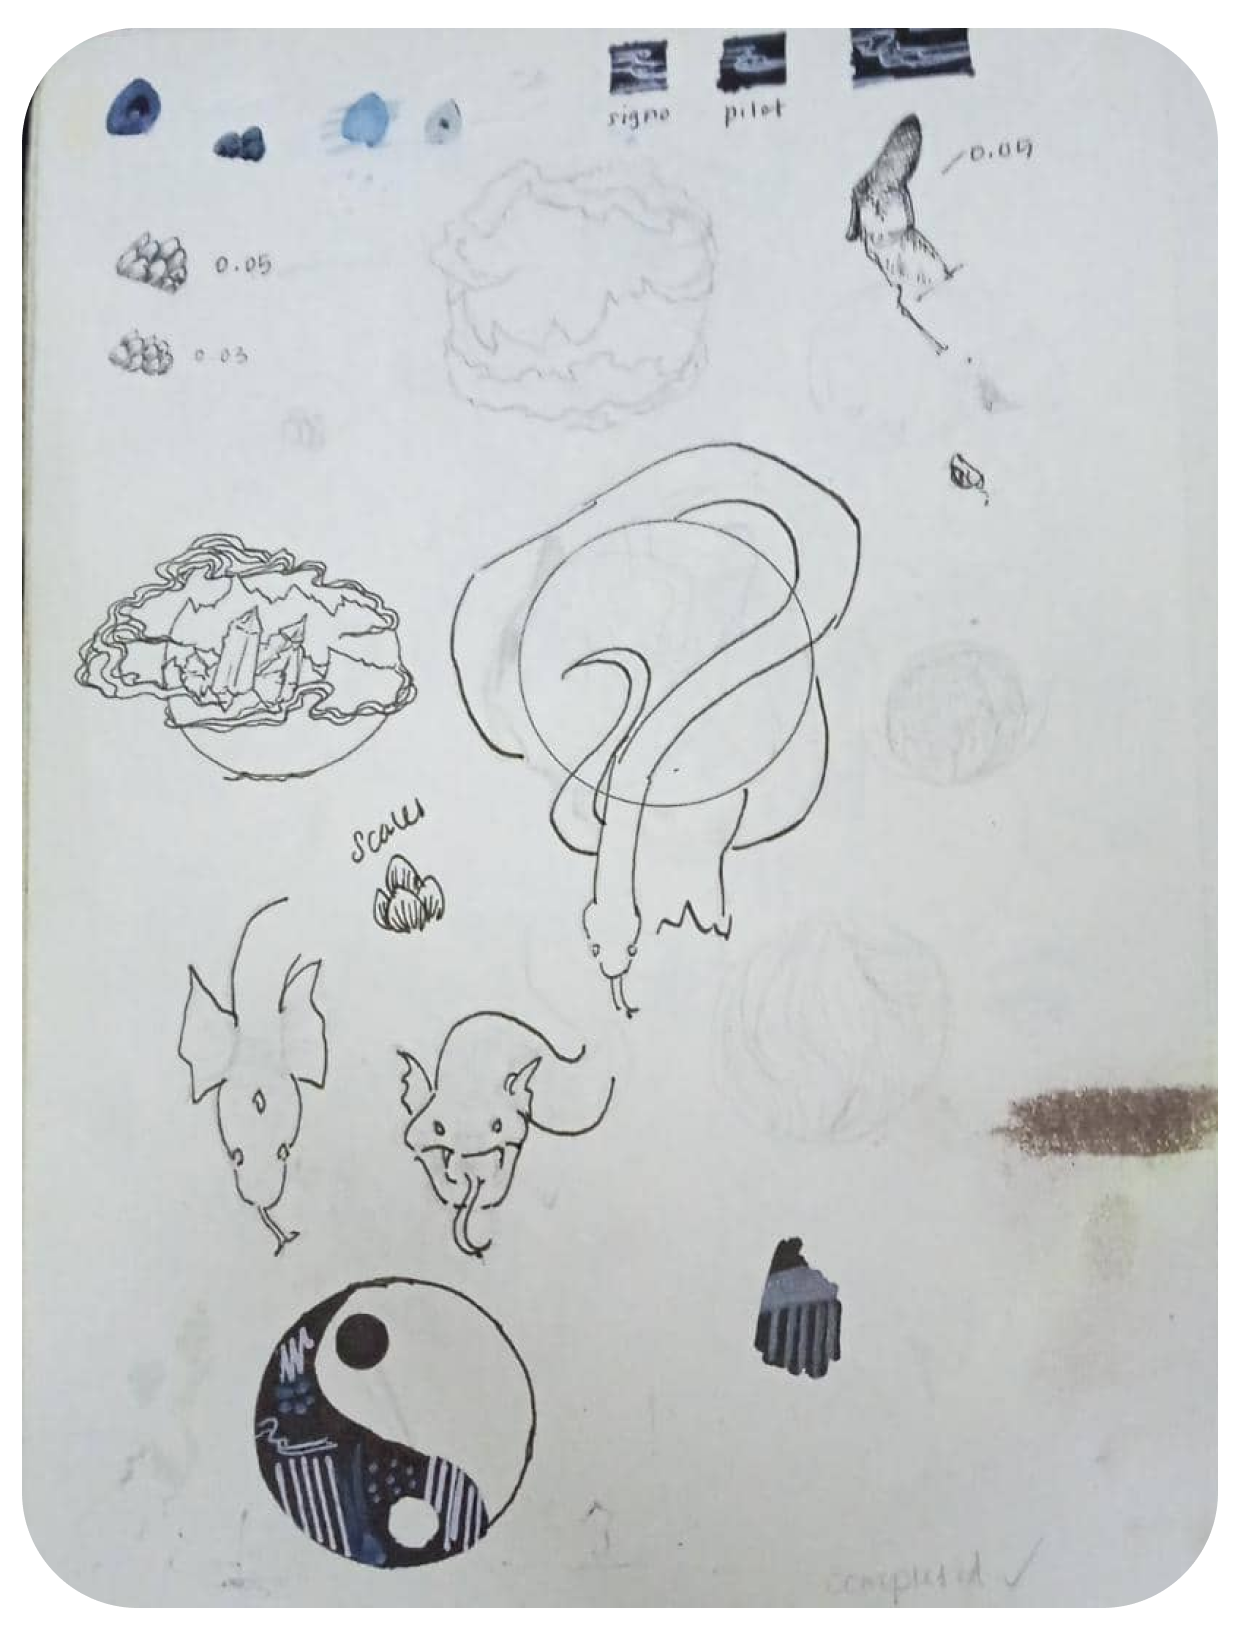 signo
pilot
0.05
0.05
0.03
Scales
completed ✓